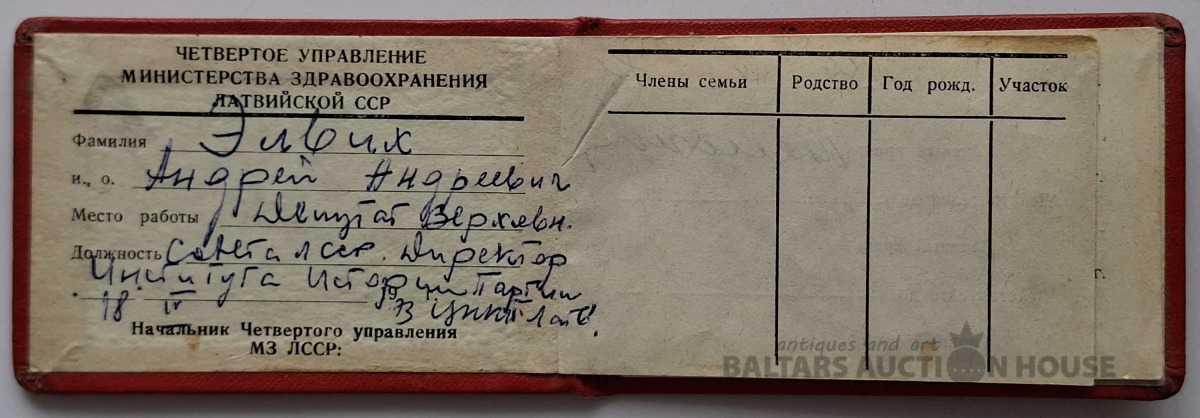 ЧЕТВЕРТОЕ УПРАВЛЕНИЕ
МИНИСТЕРСТВА ЗДРАВООХРАНЕНИЯ
ЛАТВИЙСКОЙ ССР
Фамилия Элвих
и., о. Андрей Андреевич
Место работы Депутат Верховн.
Должность Совета ЛССР. Директор
Института Истории Партии
18 IV 19 г. В ЦККП Латв.
Начальник Четвертого управления
МЗ ЛССР:
Члены семьи Родство Год рожд. Участок
г.
antiques and art
BALTARS AUCTION HOUSE